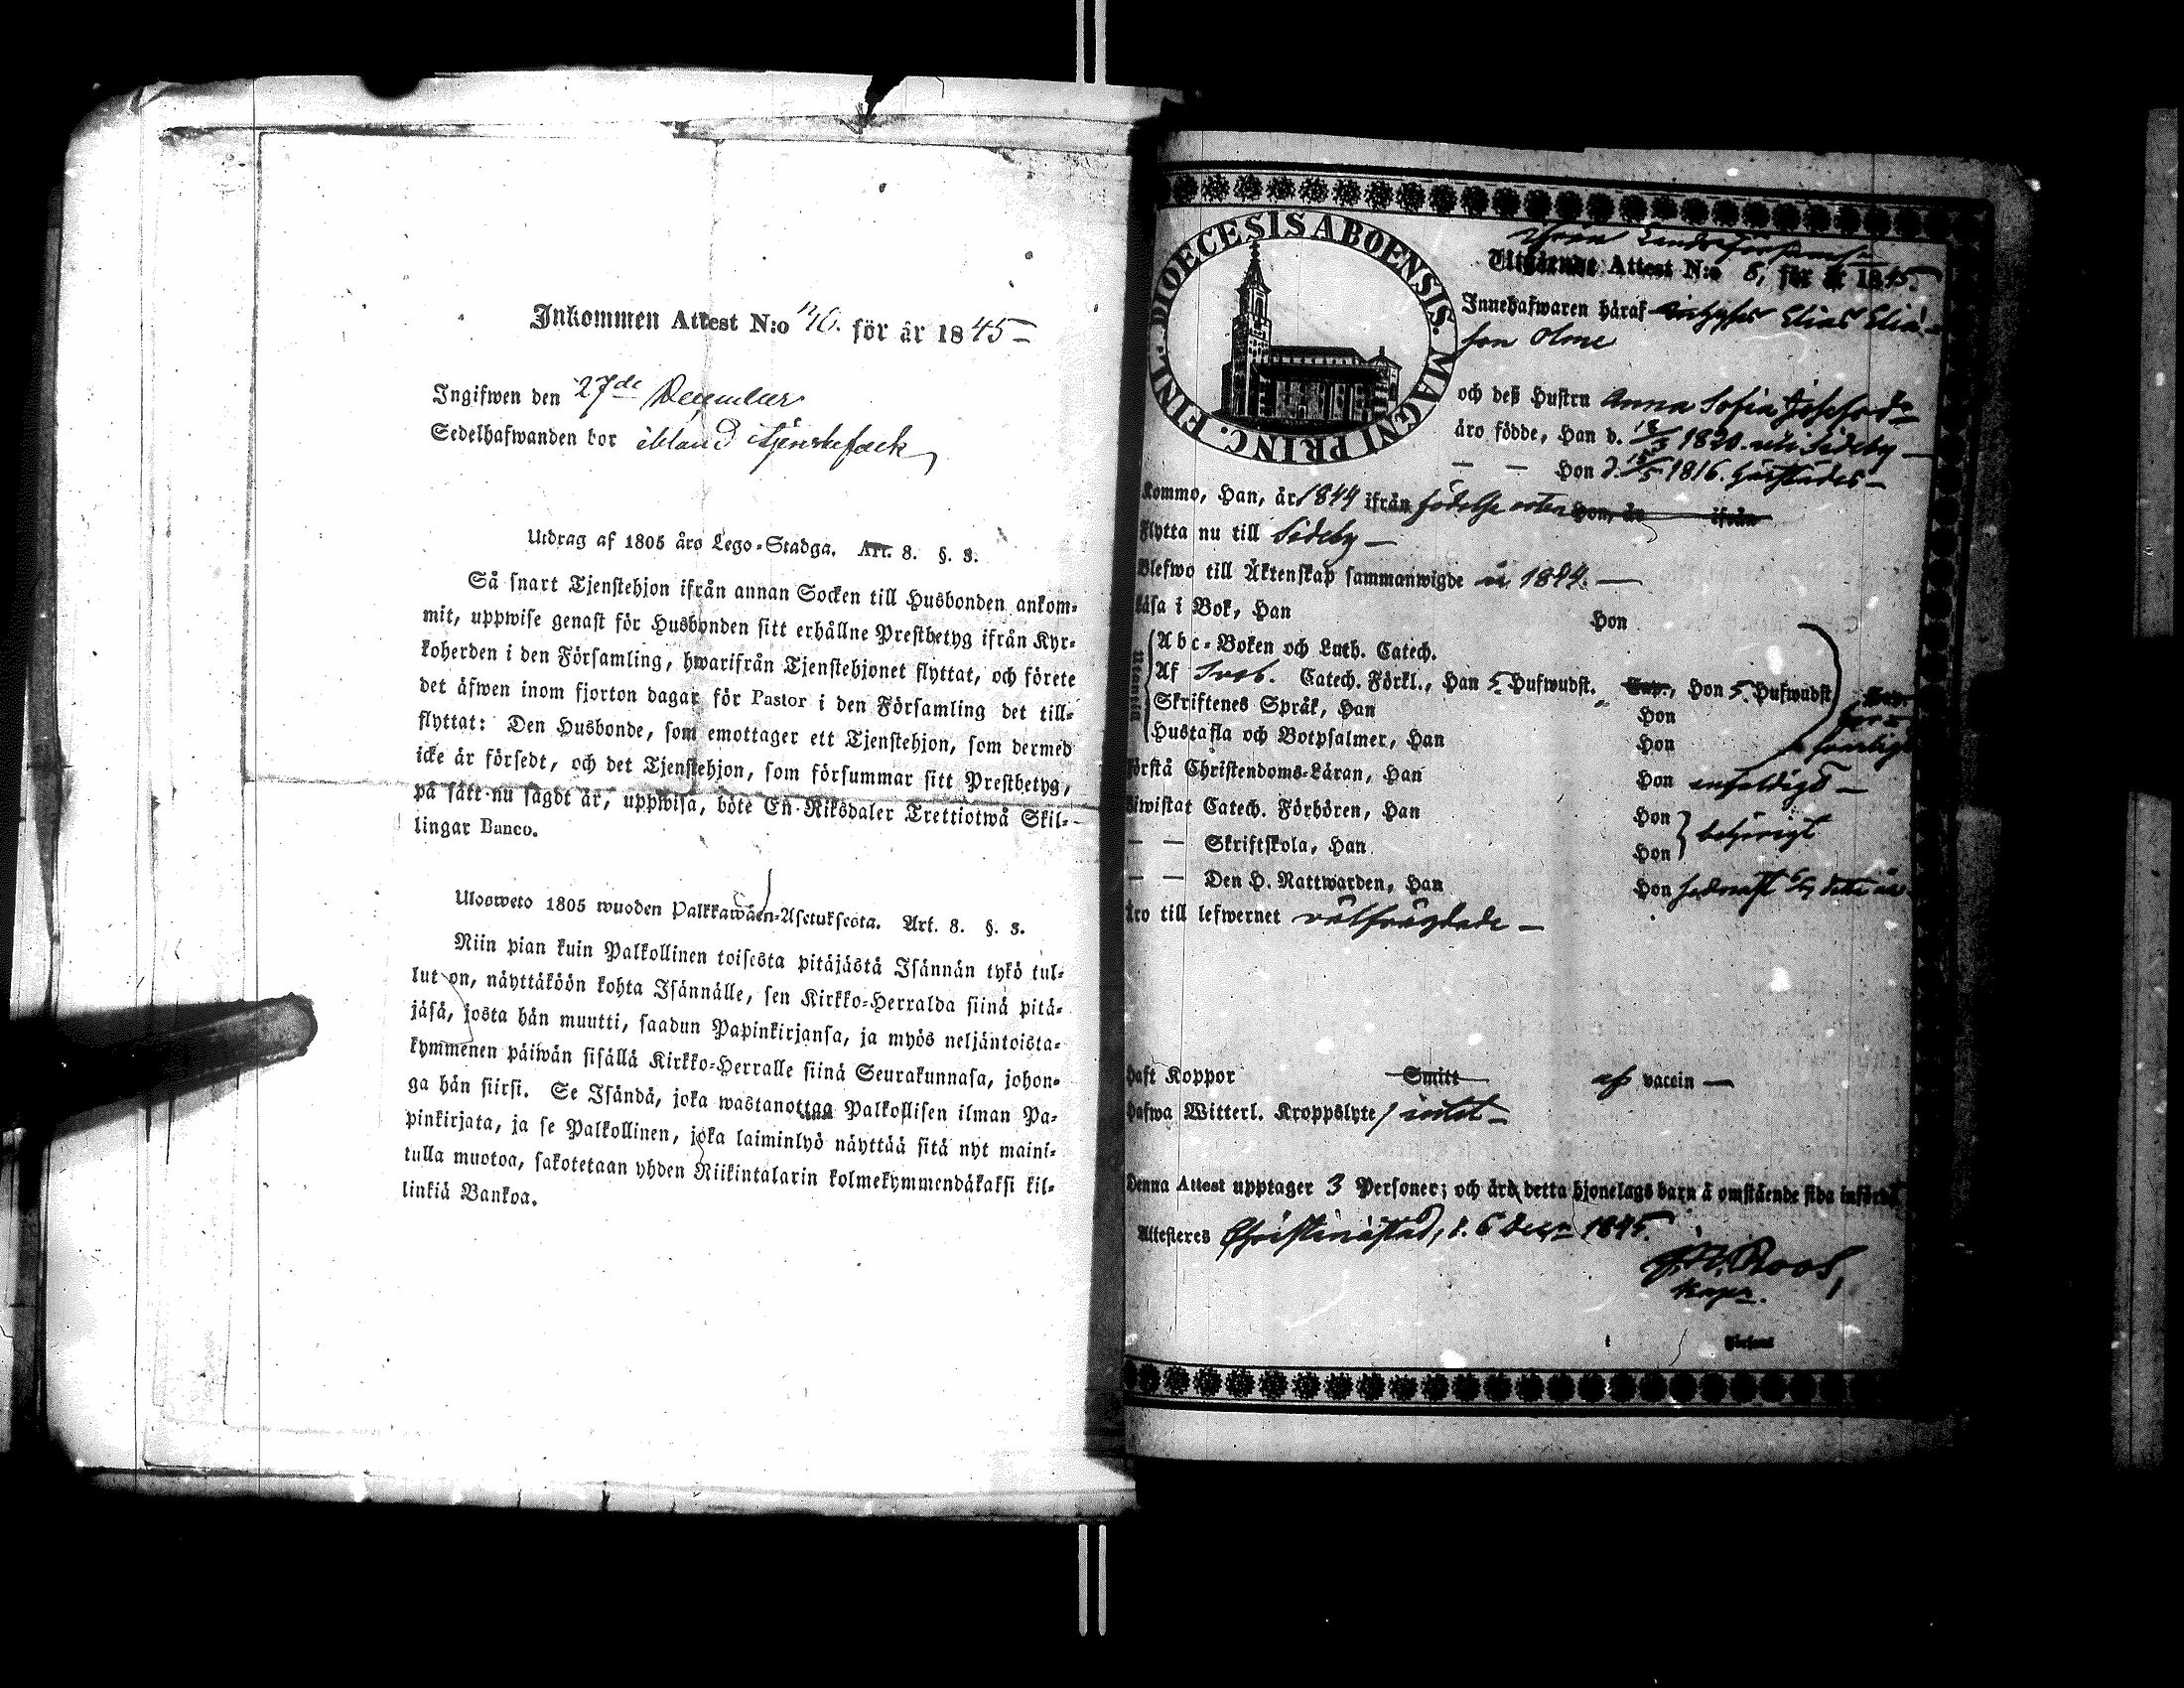 Inkommen Attest N:o 46. för år 1845 —
Ingifwen den 27de December
Sedelhafwanden bor ibland tjenstefolk
Utdrag af 1805 års Lego-Stadga. Art. 8. §. 3.
Så snart Tjenstehjon ifrån annan Socken till Husbonden ankom-
mit, uppwise genast för Husbonden sitt erhållne Prestbetyg ifrån Kyr-
koherden i den Församling, hwarifrån Tjenstehjonet flyttat, och förete
det äfwen inom fjorton dagar för Pastor i den Församling det till-
flyttat: Den Husbonde, som emottager ett Tjenstehjon, som dermed
icke är försedt, och det Tjenstehjon, som försummar sitt Prestbetyg,
på sätt nu sagdt är, uppwisa, böte En Riksdaler Trettiotwå Skil-
lingar Banco.
Ulosweto 1805 wuoden Palkkawäen-Asetuksesta. Art. 8. §. 3.
Niin pian kuin Palkollinen toisesta pitäjästä Isännän tykö tul-
lut on, näyttäköön kohta Isännälle, sen Kirkko-Herralda siinä pitä-
jäsä, josta hän muutti, saadun Papinkirjansa, ja myös neljäntoista-
kymmenen päiwän sisällä Kirkko-Herralle siinä Seurakunnasa, johon-
ga hän siirsi. Se Isändä, joka wastanottaa Palkollisen ilman Pa-
pinkirjata, ja se Palkollinen, joka laiminlyö näyttää sitä nyt maini-
tulla muotoa, sakotetaan yhden Riikintalarin kolmekymmendäkaksi kil-
linkiä Bankoa.
DIOECESIS ABOENSIS. MAGNI PRINC. FINL.
Utgående Attest N:o 6, för år 1845.
Innehafwaren häraf Elias Elia-
son Olme
och deß Hustru Anna Sofia Josefsdr
äro födde, Han d. 18/3 1820. uti Sideby —
— — Hon d. 15/5 1816. härstädes —
Kommo, Han, år 1844 ifrån födelse orten Hon, år ifrån
Flytta nu till Sideby —
Blefwo till Äktenskap sammanwigde år 1844. —
Läsa i Bok, Han Hon
Abc-Boken och Luth. Catech.
Af Sveb. Catech. Förkl., Han 5 Hufwudst. Cap., Hon 5. Hufwudst
Skriftenes Språk, Han Hon
Hustafla och Botpsalmer, Han Hon
Förstå Christendoms-Läran, Han Hon enfaldigt —
Biwistat Catech. Förhören, Han Hon
— — Skriftskola, Han Hon behörigt
— — Den H. Nattwarden, Han Hon sednast detta år
Äro till lefwernet välfrägdade —
Haft Koppor Smitt af vaccin —
Hafwa Witterl. Kroppslyte intet —
Denna Attest upptager 3 Personer; och äro detta hjonelags barn å omstående sida införde
Attesteres Christinæstad, d. 6 Decr 1845.
Roos,
Kapn.